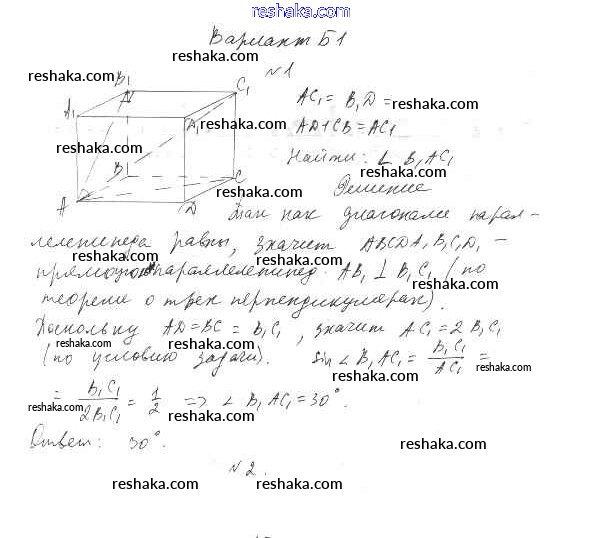 reshaka.com
Вариант Б1
reshaka.com
№1
reshaka.com
B₁
C₁
A₁
D₁
B
C
A
D
AC₁ = B₁D =
reshaka.com
reshaka.com
AD + CB = AC₁
reshaka.com
Найти: ∠ B₁AC₁
reshaka.com
reshaka.com
Решение
Так как диагонали парал-
лелепипеда равны, значит ABCDA₁B₁C₁D₁ -
reshaka.com reshaka.com
прямоуг. параллелепипед. AB₁ ⊥ B₁C₁ (по
теореме о трех перпендикулярах).
reshaka.com reshaka.com
Поскольку AD = BC = B₁C₁, значит AC₁ = 2B₁C₁
reshaka.com
(по условию задачи). sin ∠ B₁AC₁ = B₁C₁ / AC₁ =
reshaka.com reshaka.com
= B₁C₁ / 2B₁C₁ = 1/2 => ∠ B₁AC₁ = 30°.
reshaka.com reshaka.com
Ответ: 30°.
reshaka.com
№2.
reshaka.com reshaka.com